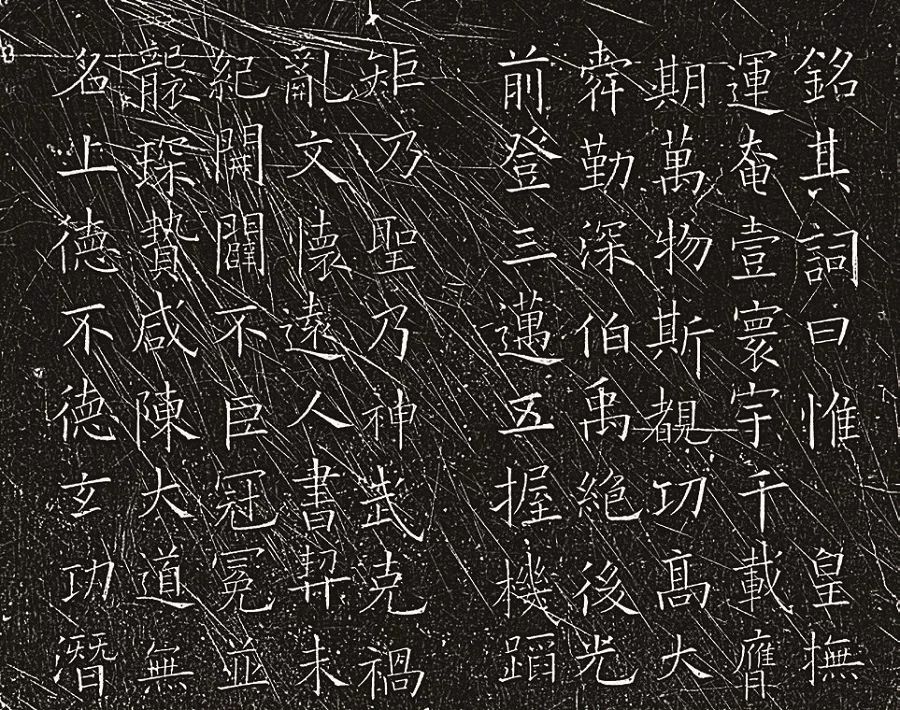 銘其詞曰惟　皇撫
運奄壹寰宇千載膺
期萬物斯覩功高大
舜勤深伯禹絕後光
前登三邁五握機蹈
矩乃聖乃神武克禍
亂文懷遠人書契未
紀開闢不臣冠冕並
襲琛贄咸陳大道無
名上德不德玄功潛